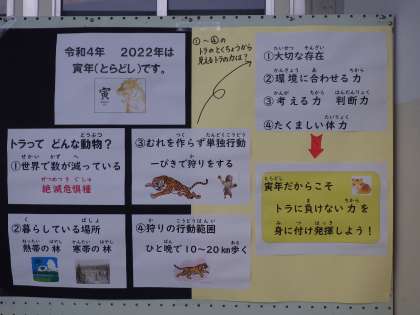 令和4年 2022年は
寅年(とらどし)です。
寅
トラって どんな動物?
①世界で数が減っている
絶滅危惧種
②暮らしている場所
熱帯の林 寒帯の林
③むれを作らず単独行動
一ぴきで狩りをする
④狩りの行動範囲
ひと晩で10～20km歩く
①～④の
トラのとくちょうから
見えるトラの力は?
①大切な存在
②環境に合わせる力
③考える力 判断力
④たくましい体力
寅年だからこそ
トラに負けない力を
身に付け発揮しよう!